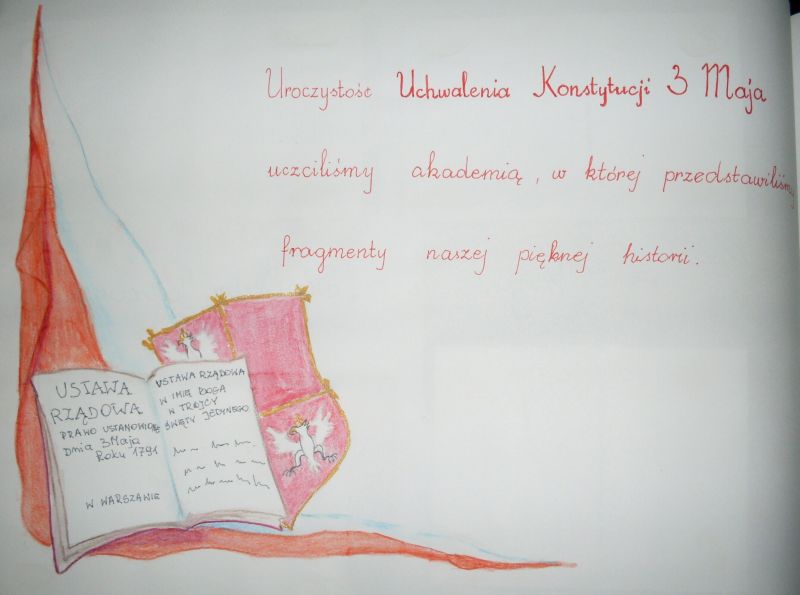 Uroczystość Uchwalenia Konstytucji 3 Maja
uczciliśmy akademią, w której przedstawiliśmy
fragmenty naszej pięknej historii.
USTAWA
RZĄDOWA
PRAWO USTANOWIONE
Dnia 3 Maja
Roku 1791
W WARSZAWIE
USTAWA RZĄDOWA
W IMIĘ BOGA
W TRÓJCY
ŚWIĘTY JEDYNEGO